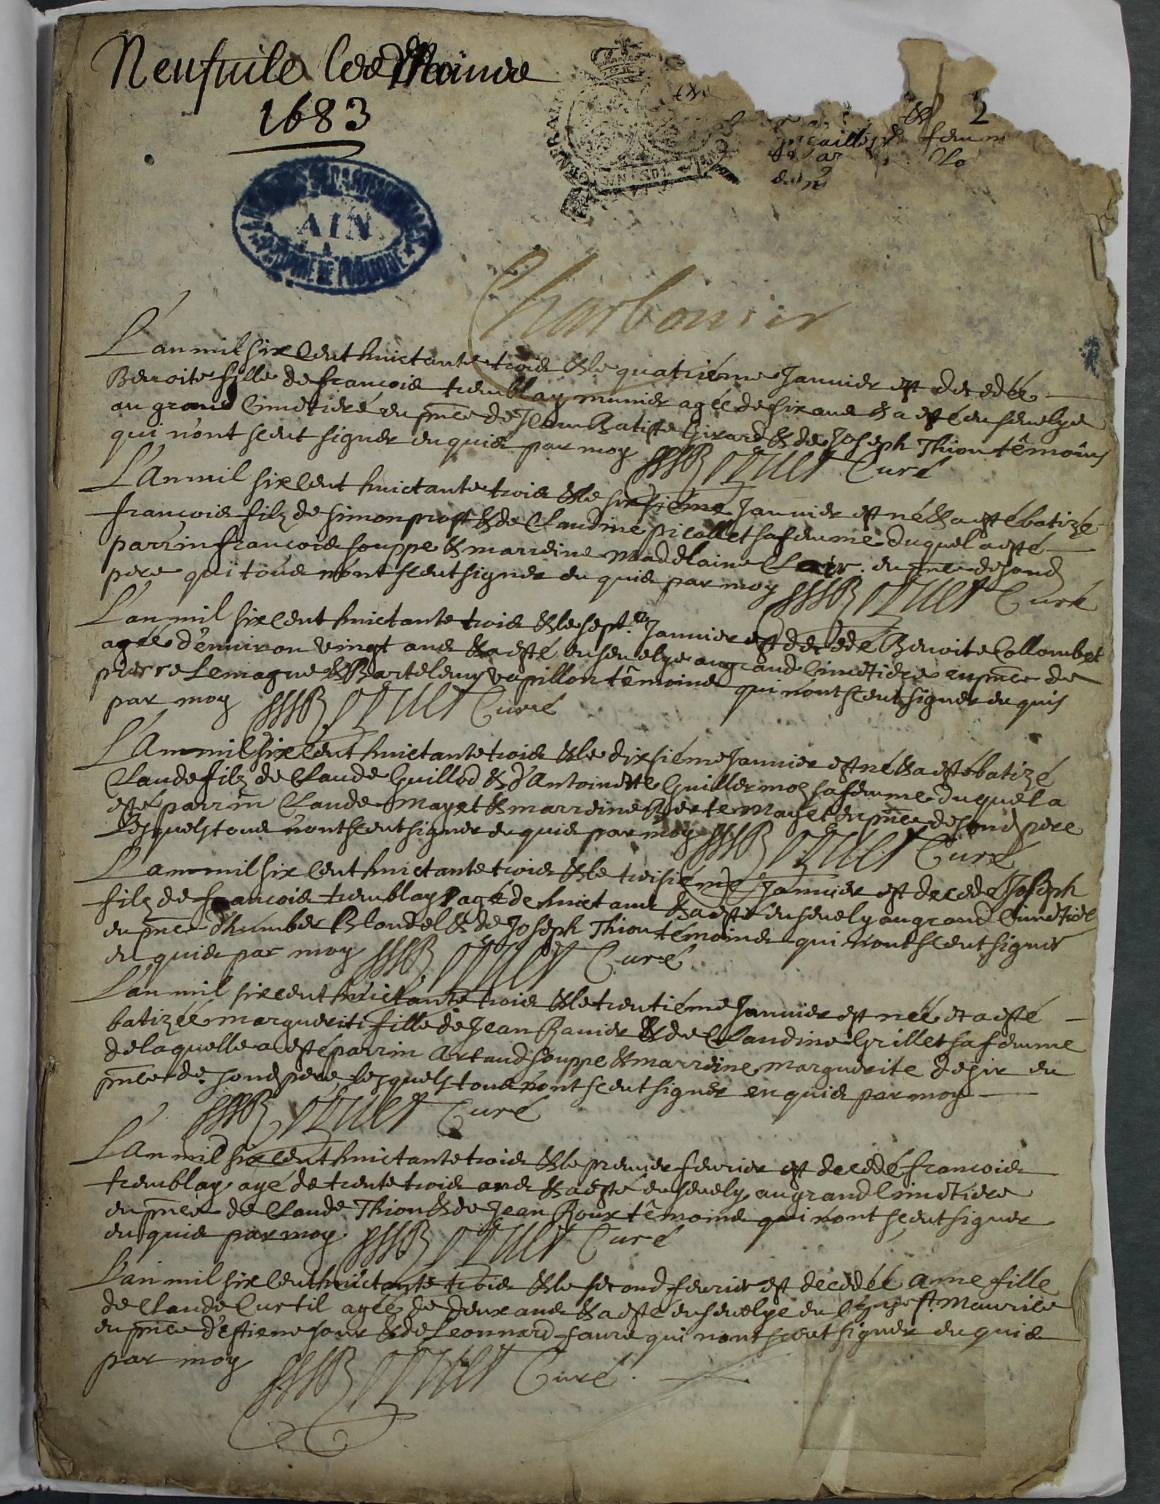 Neufuile les Dames
1683
2
AIN
Charbonier
L'an mil six cent huictante trois & le quatriéme Januier est decedée
Benoite fille de francois tremblay munier agée de six ans & a esté enseuelye
au grand Cimetiére en pnce de Jean Batiste Girard & de Joseph Thion têmoins
qui n'ont sceut signer enquis par moy Curé
L'An mil six cent huictante trois & le sixiéme Januier est né & a esté batizé
francois filz de Simon prost & de Claudine picollet sa femme duquel a esté
parrin francois souppe & marreine Madelaine Clair en pnce de sond
pere qui tous n'ont sceut signer enquis par moy Curé
L'an mil six cent huictante trois & le sept.e Januier est decedé Benoite Collombet
agée d'enuiron vingt ans & a esté enseuelye au grand Cimetiére en pnce de
pierre Lemagne & Bartelemy papillon têmoins qui n'ont sceut signer enquis
par moy Curé
L'An mil six cent huictante trois & le dixiéme Januier est né & a esté batizé
Claude filz de Claude Guillod & d'Antoinette Guillermoz sa femme duquel a
esté parrin Claude Mayet & marreine Mayet en pnce de sond pere
Lesquels tous n'ont sceut signer enquis par moy Curé
L'an mil six cent huictante trois & le troisiéme Januier est decedé Joseph
filz de francois tremblay agé de huict ans & a esté enseuely au grand Cimetiére
en pnce d'humber Blondel & de Joseph Thion témoins qui n'ont sceut signer
enquis par moy Curé
L'an mil six cent huictante trois & le trentiéme Januier est née et a esté
batizée marguerite fille de Jean Bauier & de Claudine Grillet sa femme
de laquelle a esté parrin Artaud souppe & marreine marguerite desir en
pnce de sond pere lesquels tous n'ont sceut signer enquis par moy
Curé
L'An mil six cent huictante trois & le premier feurier est decedé francois
tremblay agé de trente trois ans & a esté enseuely au grand Cimetiére
en pnce de Claude Thion & de Jean Roux têmoins qui n'ont sceut signer
enquis par moy Curé
L'an mil six cent huictante trois & le second feurier est decedée anne fille
de Claude Curtil agée de deux ans & a esté enseuelye en l'Eglise St. Maurice
en pnce d'Estiene four & de Leonnard faure qui n'ont sceut signer enquis
par moy Curé